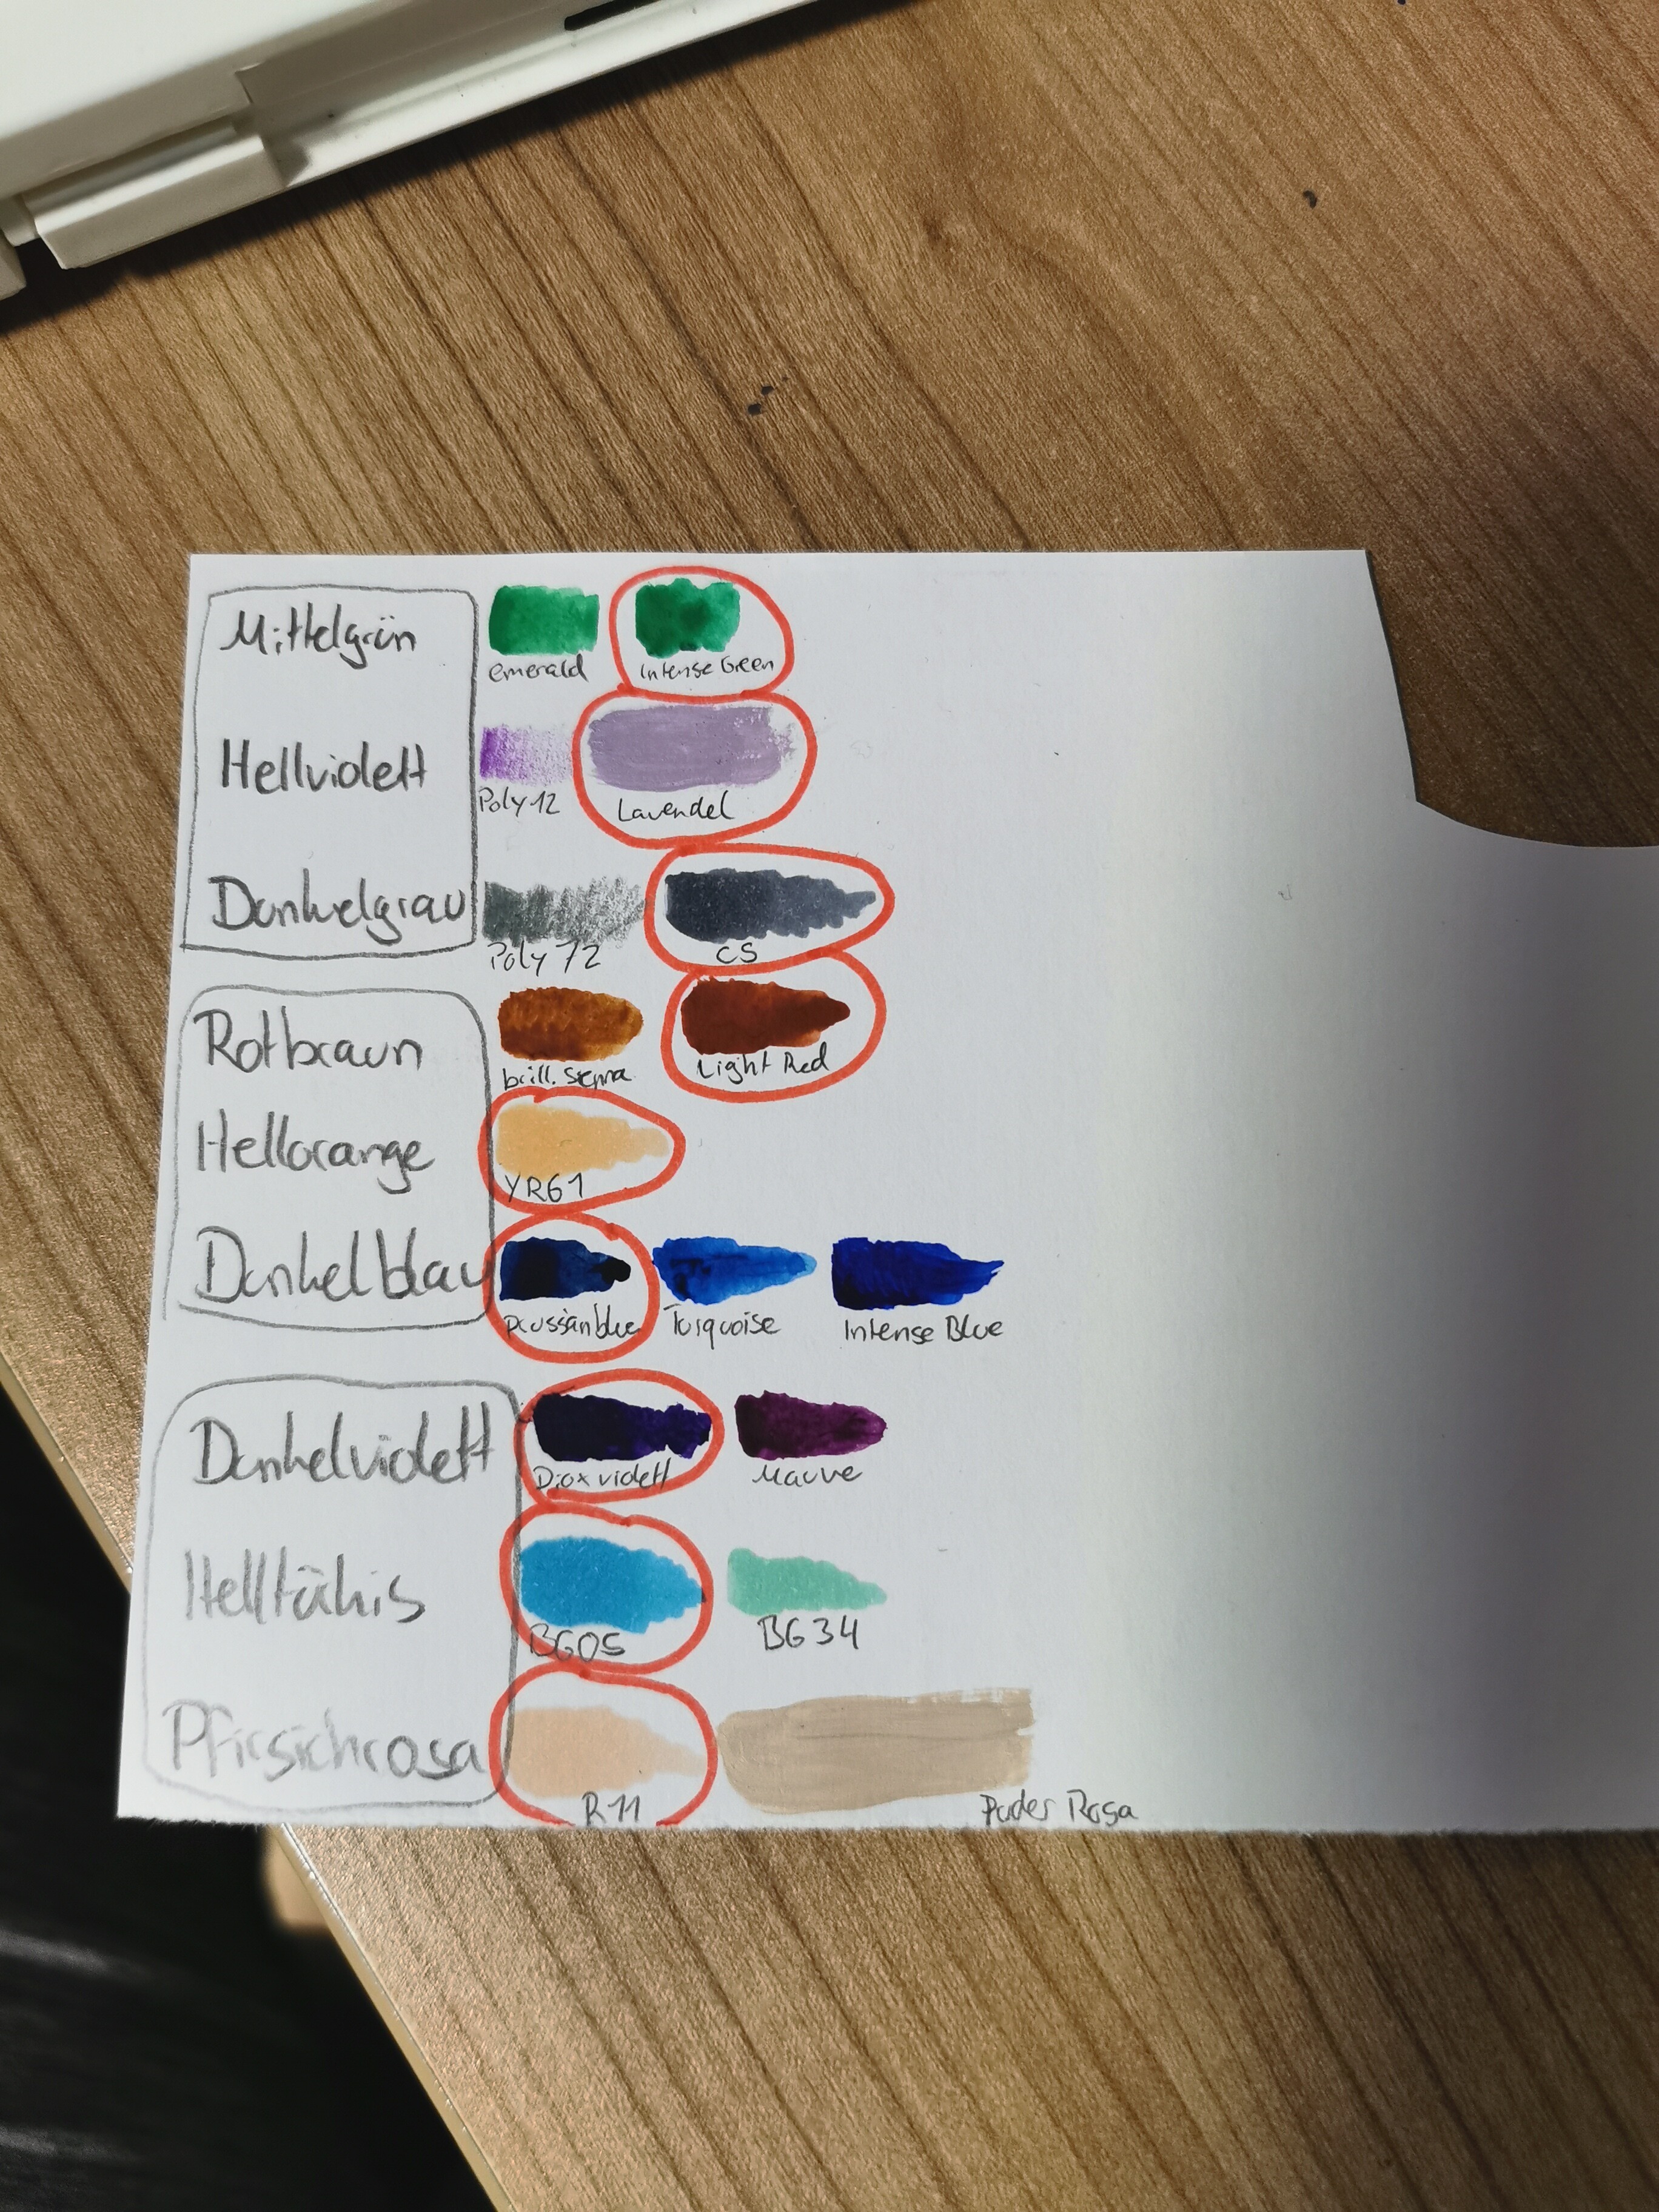 Mittelgrün
emerald Intense Green
Hellviolett
Poly 12 Lavendel
Dunkelgrau
Poly 72 C5
Rotbraun
brill. Sienna Light Red
Hellorange
YR61
Dunkelblau
prussianblue Turquoise Intense Blue
Dunkelviolett
Dioxviolett Mauve
Helltükis
BG05 BG34
Pfirsichrosa
R11 Puder Rosa